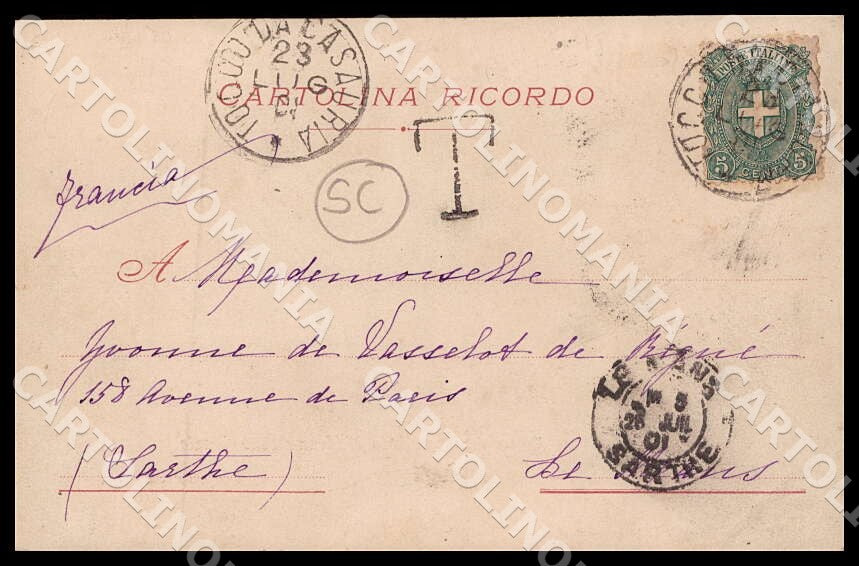 TOCCO DA CASAURIA
23
LUG
01
POSTE ITALIANE
5 CENT 5
CARTOLINA RICORDO
T
francia
SC
A Mademoiselle
Yvonne de Vasselot de Régné
158 Avenue de Paris
(Sarthe) Le Mans
LE MANS
5
25 JUIL
01
SARTHE
CARTOLINOMANIA